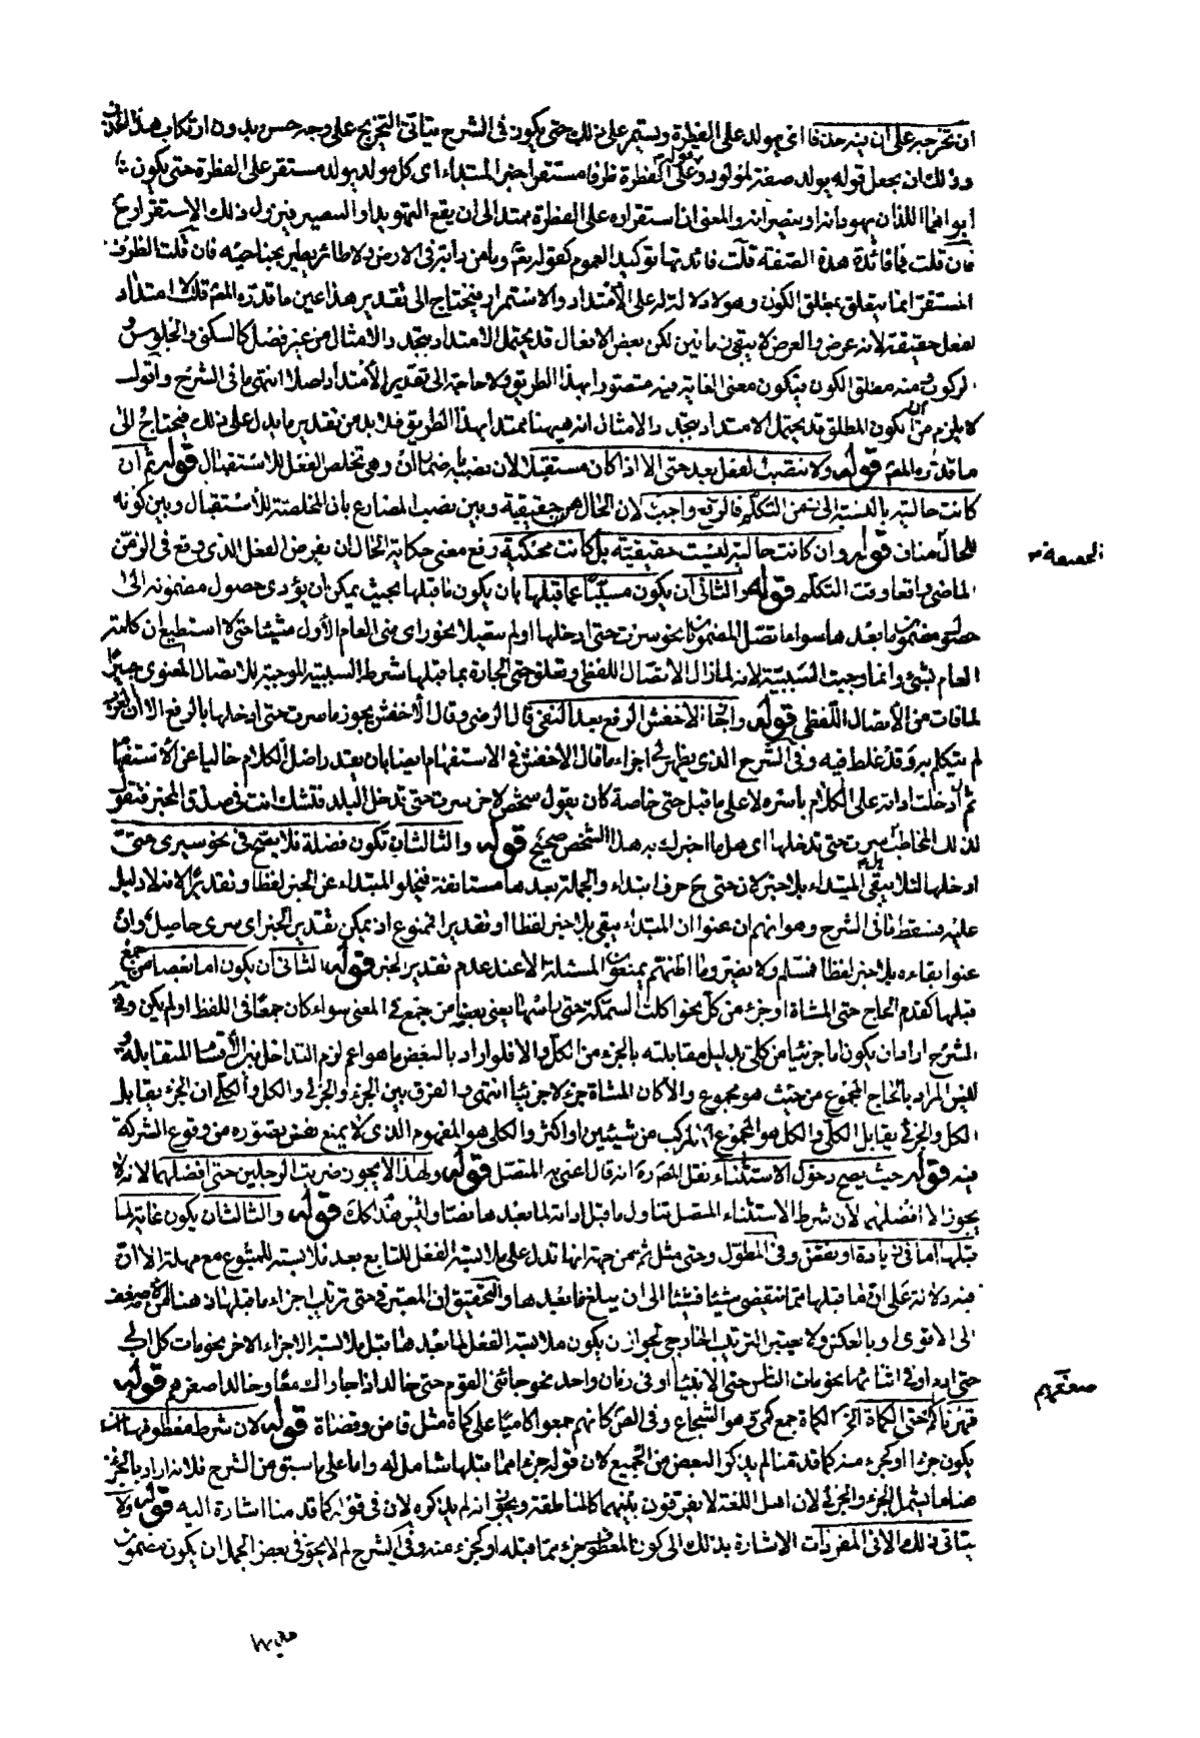 ان تخرجه على ان فيه حذفا اى يولد على الفطرة ويستمر على ذلك حتى يكون فى الشرح يتأتى التخريج على وجه حسن بدون ارتكاب هذا الحذف
وذلك ان يجعل قوله يولد صفة لمولود وعلى الفطرة ظرفا مستقرا خبر المبتداء اى كل مولود يولد مستقر على الفطرة حتى يكون
ابواه هما اللذان يهودانه او ينصرانه والمعنى ان استقراره على الفطرة ممتد الى ان يقع التهويد او التنصير فيزول ذلك الاستقرار ع
فان قلت فما فائدة هذه الصفة قلت فائدتها توكيد العموم كقوله تع وما من دابة فى الارض ولا طائر يطير بجناحيه فان قلت الظرف
المستقر انما يتعلق بمطلق الكون وهو لا دلالة له على الامتداد والاستمرار فيحتاج الى تقدير هذا عين ما قدره المص قلت لا امتداد
لفعل حقيقة لانه عرض والعرض لا يبقى زمانين لكن بعض الافعال قد يحتمل الامتداد بتجدد الامثال من غير فصل كالسكنى والجلوس
الركوب ومنه مطلق الكون فيكون معنى الغاية فيه متصورا بهذا الطريق ولا حاجة الى تقدير الامتداد اصلا انتهى ما فى الشرح واقول
لا يلزم من ان الكون المطلق قد يحتمل الامتداد بتجدد الامثال انه ههنا ممتد بهذا الطريق فلا بد من تقدير ما يدل على ذلك فيحتاج الى
ما قدره المص قوله ولا ينتصب الفعل بعد حتى الا اذا كان مستقبلا لان نصبه باضمار ان وهى تخلص الفعل للاستقبال قوله ثم ان
كانت حاليته بالنسبة الى زمن التكلم فالرفع واجب لان الحال هو حقيقية وبين نصب المضارع بان المخلصة للاستقبال وبين كونه
للحال مناف قوله وان كانت حاليته ليست حقيقية بل كانت محكية رفع معنى حكاية الحال ان يفرض الفعل الذى وقع فى الزمن
الماضى واقعا وقت التكلم قوله والثانى ان يكون مسببا عما قبلها بان يكون ما قبلها بحيث يمكن ان يؤدى حصول مضمونه الى
حصول مضمون ما بعدها سواء اتصل المضمونان نحو سرت حتى ادخلها او لم يتصلا نحو راى منى العام الأول شيئا حتى لا استطيع ان كلمته
العام بشىء وانما وجبت السببية لانه لما زال الاتصال اللفظى وتعلق حتى الجارة بما قبلها شرط السببية الموجبة للاتصال المعنوى جبرا
لما فات من الاتصال اللفظى قوله واجاز الاخفش الرفع بعد النفى قال الرضى وقال الاخفش يجوز ما سرت حتى ادخلها بالرفع الا ان العرب
لم يتكلم به وقد غلط فيه وفى الشرح الذى يظهر لى اجراء ما قال الاخفش فى الاستفهام ايضا بان يقدر اصل الكلام خاليا عن الاستفهام
ثم ادخلت اداته على الكلام باسره لا على ما قبل حتى خاصة كان يقول شخص لاخر سرت حتى تدخل البلد فتشك انت فى صدق المخبر فتقول
لذلك المخاطب اسرت حتى تدخلها اى هل ما اخبرك به هذا الشخص صحيح قوله والثالث ان تكون فضلة فلا يصح فى نحو سيرى حتى
ادخلها لئلا يبقى المبتداء بلا خبر لان حتى ح حرف ابتداء والجملة بعدها مستانفة فيخلو المبتداء عن الخبر لفظا وتقديرا لانه لا دليل
عليه فسقط ما فى الشرح وهو انهم ان عنوا ان المبتداء يبقى بلا خبر لفظا او تقديرا فممنوع اذ يمكن تقدير الخبر اى سيرى حاصل وان
عنوا بقاءه بلا خبر لفظا فسلم ولا يضر وما اظنهم يمنعون المسئلة الا عند عدم تقدير الخبر قوله الثانى ان يكون اما بعضا من جمع
قبلها كقدم الحاج حتى المشاة او جزء من كل نحو اكلت السمكة حتى راسها يعنى بعضا من جمع فى المعنى سواء كان جمعا فى اللفظ او لم يكن وفى
الشرح اراد ان يكون اما جزئيا من كلى بدليل مقابلته بالجزء من الكل والا فلو اراد بالبعض ما هو اعم لزم التداخل بين الاقسام المتقابلة و
ليس المراد بالحاج المجموع من حيث هو مجموع والا كان المشاة جزء لا جزئيا انتهى والفرق بين الجزء والجزئى والكل والكلى ان الجزء يقابل
الكل والجزئى يقابل الكلى والكل هو المجموع المركب من شيئين او اكثر والكلى هو المفهوم الذى لا يمنع نفس تصوره من وقوع الشركة
فيه قوله حيث يصح دخول الاستثناء نقل انه قال اعنى به المتصل قوله ولهذا لا يجوز ضربت الرجلين حتى افضلهما لانه لا
يجوز الا افضلهم لان شرط الاستثناء المتصل تناول ما قبل اداته لما بعدها نصا وليس هذا كك قوله والثالث ان يكون غاية لما
قبلها اما فى زيادة او نقص وفى المطول وحتى مثل ثم من جهة انها تدل على ملابسة الفعل للتابع بعد ملابسته للمتبوع مع مهلة الا ان
فيه دلالة على ان ما قبلها مما ينقضى شيئا فشيئا الى ان يبلغ ما بعدها والتحقيق ان المعتبر فى حتى ترتيب اجزاء ما قبلها ذهنا من الاضعف
الى الاقوى او بالعكس ولا يعتبر الترتيب الخارجى لجواز ان يكون ملابسة الفعل لما بعدها قبل ملابسته الاجزاء الاخر نحو مات كل اب لى
حتى ادم او فى اثنائها نحو مات الناس حتى الانبياء او فى زمان واحد نحو جائنى القوم حتى خالد اذا جاؤك معا وخالد اصغرهم قوله
قهرناكم حتى الكماة الخ الكماة جمع كمى وهو الشجاع وفى الص كانهم جمعوا كاميا على كماة مثل قاض وقضاة قوله لان شرط معطوفها ان
يكون جزءا او كجزء منه كما قدمنا لم يذكر البعض من الجميع لان قوله جزءا مما قبلها شامل له واما على ما سبق من الشرح فلانه اراد بالجزء
هنا ما يشمل الجزء والجزئى لان اهل اللغة لا يفرقون بينهما كالمناطقة ويجوز انه لم يذكره لان فى قوله كما قدمنا اشارة اليه قوله ولا
يتاتى ذلك الا فى المفردات الاشارة بذلك الى كون المعطوف جزء مما قبله او كجزء منه وفى الشرح لم لا يجوز فى بعض الجمل ان يكون مضمون
اصغرهم